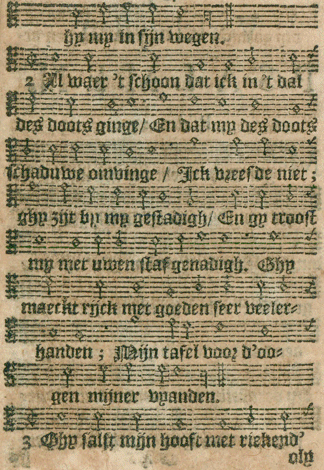 hy my in sijn wegen.
2 Al waer 't schoon dat ick in 't dal
des doots ginge/ En dat my des doots
schaduwe omvinge / Ick vreesde niet ;
ghy zijt by my gestadigh/ En gy troost
my met uwen staf genadigh. Ghy
maeckt rijck met goeden seer veeler-
handen ; Mijn tafel voor d'oo-
gen mijner vyanden.
3 Ghy salft mijn hooft met riekend'
oly